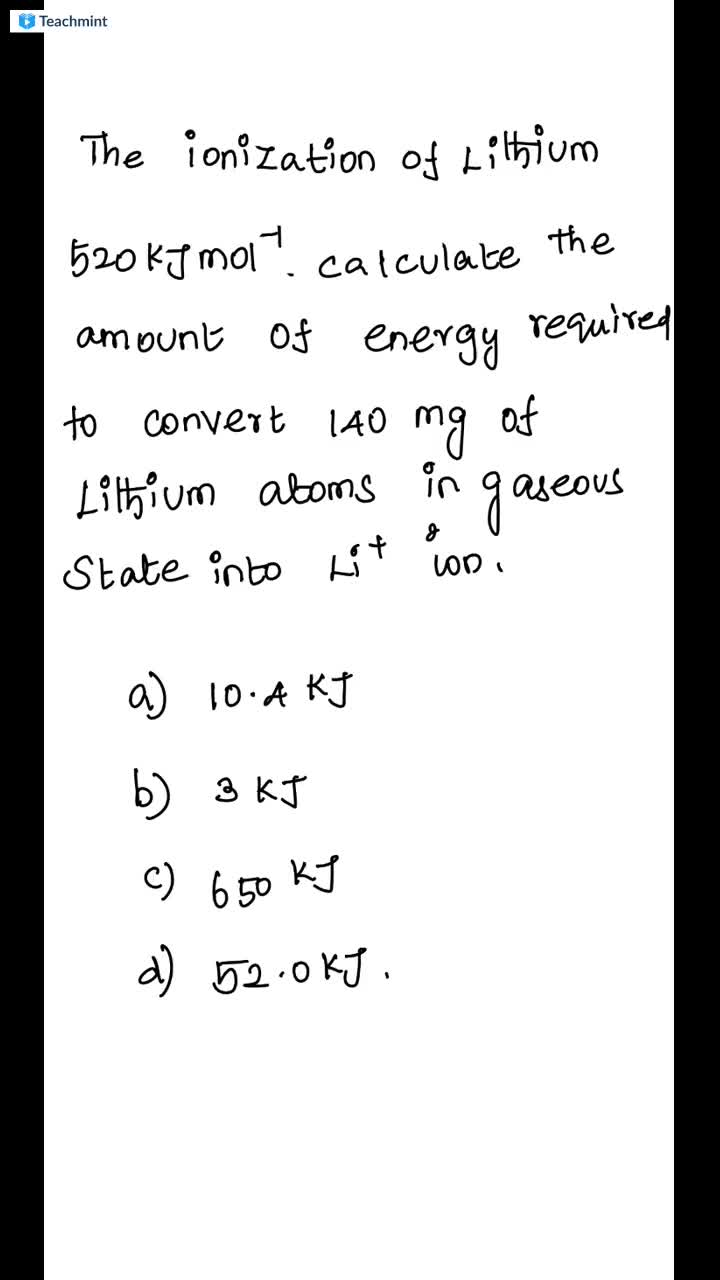 Teachmint
The ionization of Lithium
520 KJ mol⁻¹. calculate the
amount of energy required
to convert 140 mg of
Lithium atoms in gaseous
State into Li⁺ ion.
a) 10.4 KJ
b) 3 KJ
c) 650 KJ
d) 52.0 KJ.